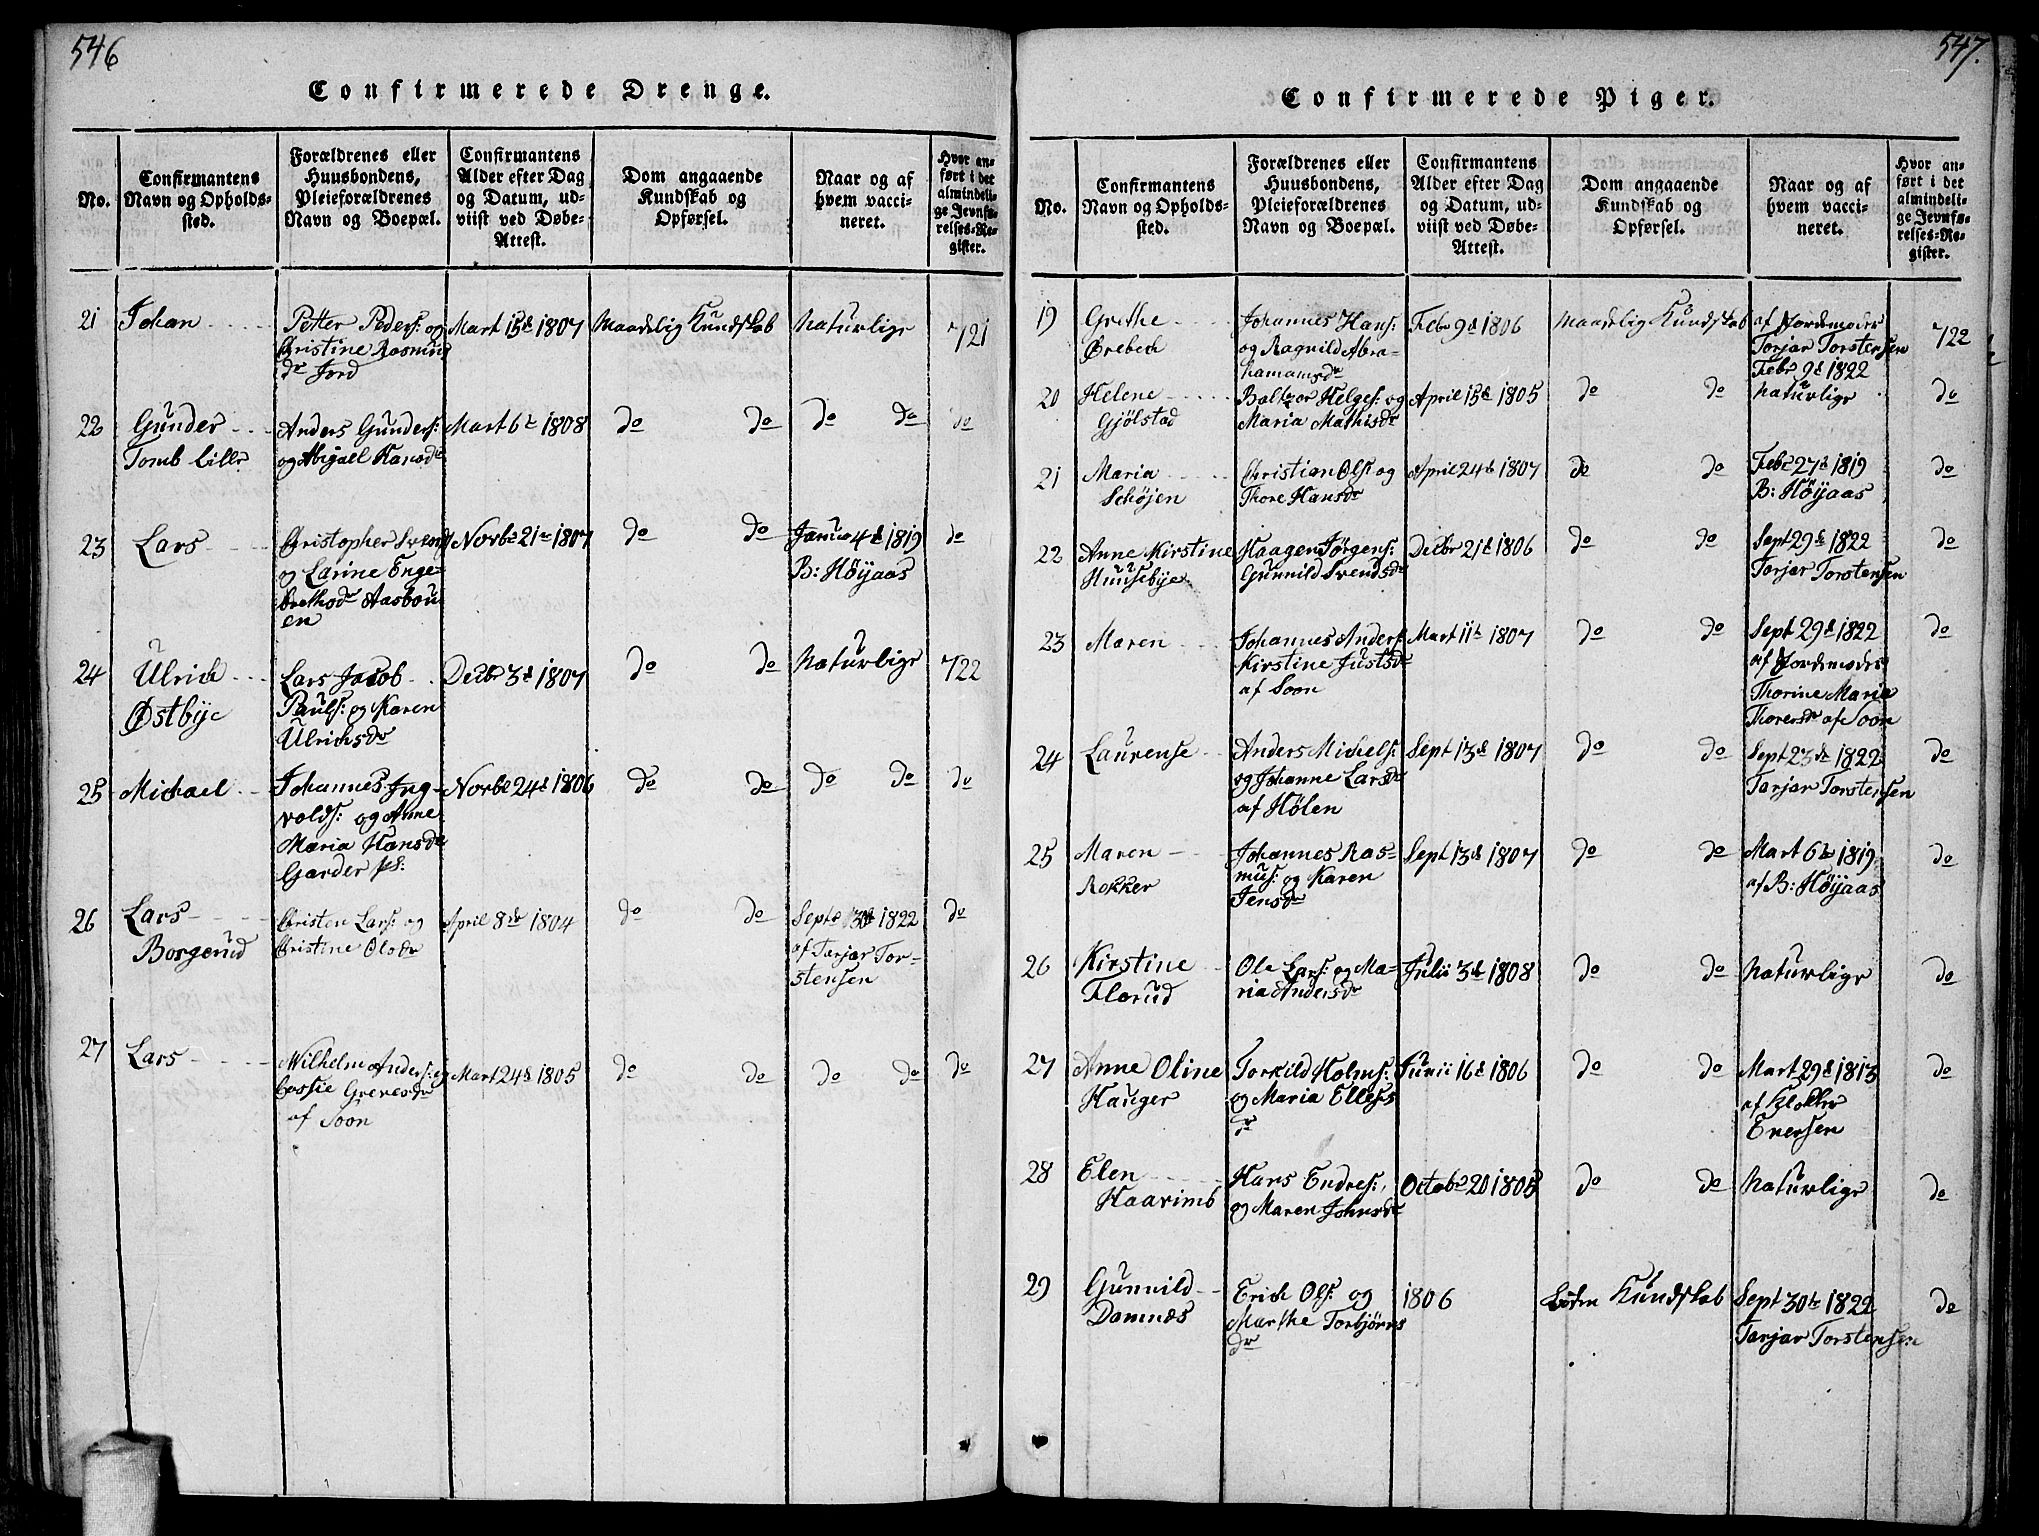 546
Confirmerede Drenge.
No.
Confirmantens
Navn og Opholds-
sted.
Forældrenes eller
Huusbondens,
Pleieforældrenes
Navn og Boepæl.
Confirmantens
Alder efter Dag
og Datum, ud-
viist ved Døbe-
Attest.
Dom angaaende
Kundskab og
Opførsel.
Naar og af
hvem vacci-
neret.
Hvor an-
ført i det
almindeli-
ge Jevnfø-
relses-Re-
gister.
21
Johan
Petter Peders: og
Christine Rasmus
dr Jord
Mart 15d 1807
Maadelig Kundskab
Naturlige
721
22
Gunder
Tomb lille
Anders Gunders:
og Abigael Hansdr
Mart 6t 1808
do do
do do
do
23
Lars
Christopher Svends
og Larine Enge-
brethsdr Aasbou
en
Novbr 21 1807
do do
Janu 4d 1819
B: Höyaas
do
24
Ulrich
Østbye
Lars Jacob
Pauls: og Karen
Ulrichsdr
Decbr 3d 1807
do do
Naturlige
722
25
Michael
Johannes Ing-
volds: og Anne
Maria Hansdr
Garder ps:
Novbr 24d 1806
do do
do do
do
26
Lars
Borgerud
Christen Lars: og
Christine Olsdr
April 8de 1804
do do
Septr 30t 1822
af Tarjar Tor-
stensen
do
27
Lars
Wilhelm Anders: og
Grevesdr
af Soon
Mart 24d 1805
do do
do do
do
547.
Confirmerede Piger.
No.
Confirmantens
Navn og Opholds-
sted.
Forældrenes eller
Huusbondens,
Pleieforældrenes
Navn og Boepæl.
Confirmantens
Alder efter Dag
og Datum, ud-
viist ved Døbe-
Attest.
Dom angaaende
Kundskab og
Opførsel.
Naar og af
hvem vacci-
neret.
Hvor an-
ført i det
almindeli-
ge Jevnfø-
relses-Re-
gister.
19
Grethe
Ørebech
Johannes Hans:
og Ragnild Abra-
hamamsdr
Febr 9d 1806
Maadelig Kundskab
af Jordemoder
Torjar Torstensen
Febr 9d 1822
722
20
Helene
Gjölstad
Baltzor Helges: og
Maria Mathisdr
April 15d 1805
do do
Naturlige
do
21
Maria
Schöjen
Christian Ols: og
Thore Hansdr
April 24d 1807
do do
Febr 27d 1819
B: Höyaas
do
22
Anne Kirstine
Huusebye
Haagen Jørgens:
Gunnild Svendsdr
Decbr 21d 1806
do do
Sept 29d 1822
Tarjar Torstensen
do
23
Maren
Johannes Anders:
Kirstine Justsdr
af Soon
Mart 11t 1807
do do
Sept 29d 1822
af Jordemoder
Thorine Marie
Thoresdr af Soon
do
24
Laurense
Anders Michels:
og Johanne Larsdr
af Hölen
Sept 13d 1807
do do
Sept 23de 1822
Tarjar Torstensen
do
25
Maren
Rokker
Johannes Ras-
mus: og Karen
Jensdr
Sept 13d 1807
do do
Mart 6te 1819
af B: Höyaas
do
26
Kirstine
Florud
Ole Lars: og Ma-
ria Andersdr
Julii 3d 1808
do do
Naturlige
do
27
Anne Oline
Hauger
Torkild Holms:
og Maria Elless
dr
Junii 16d 1806
do do
Mart 29d 1813
af Klokker
Eversen
do
28
Elen
Haarimb
Hans Endres:
og Maren Johnsdr
Octobr 20 1805
do do
Naturlige
do
29
Gunnild
Damnæs
Erich Ols: og
Marthe Torbjørns
dr
1806
Kundskab
Sept 30te 1822
Tarjar Torstensen
do